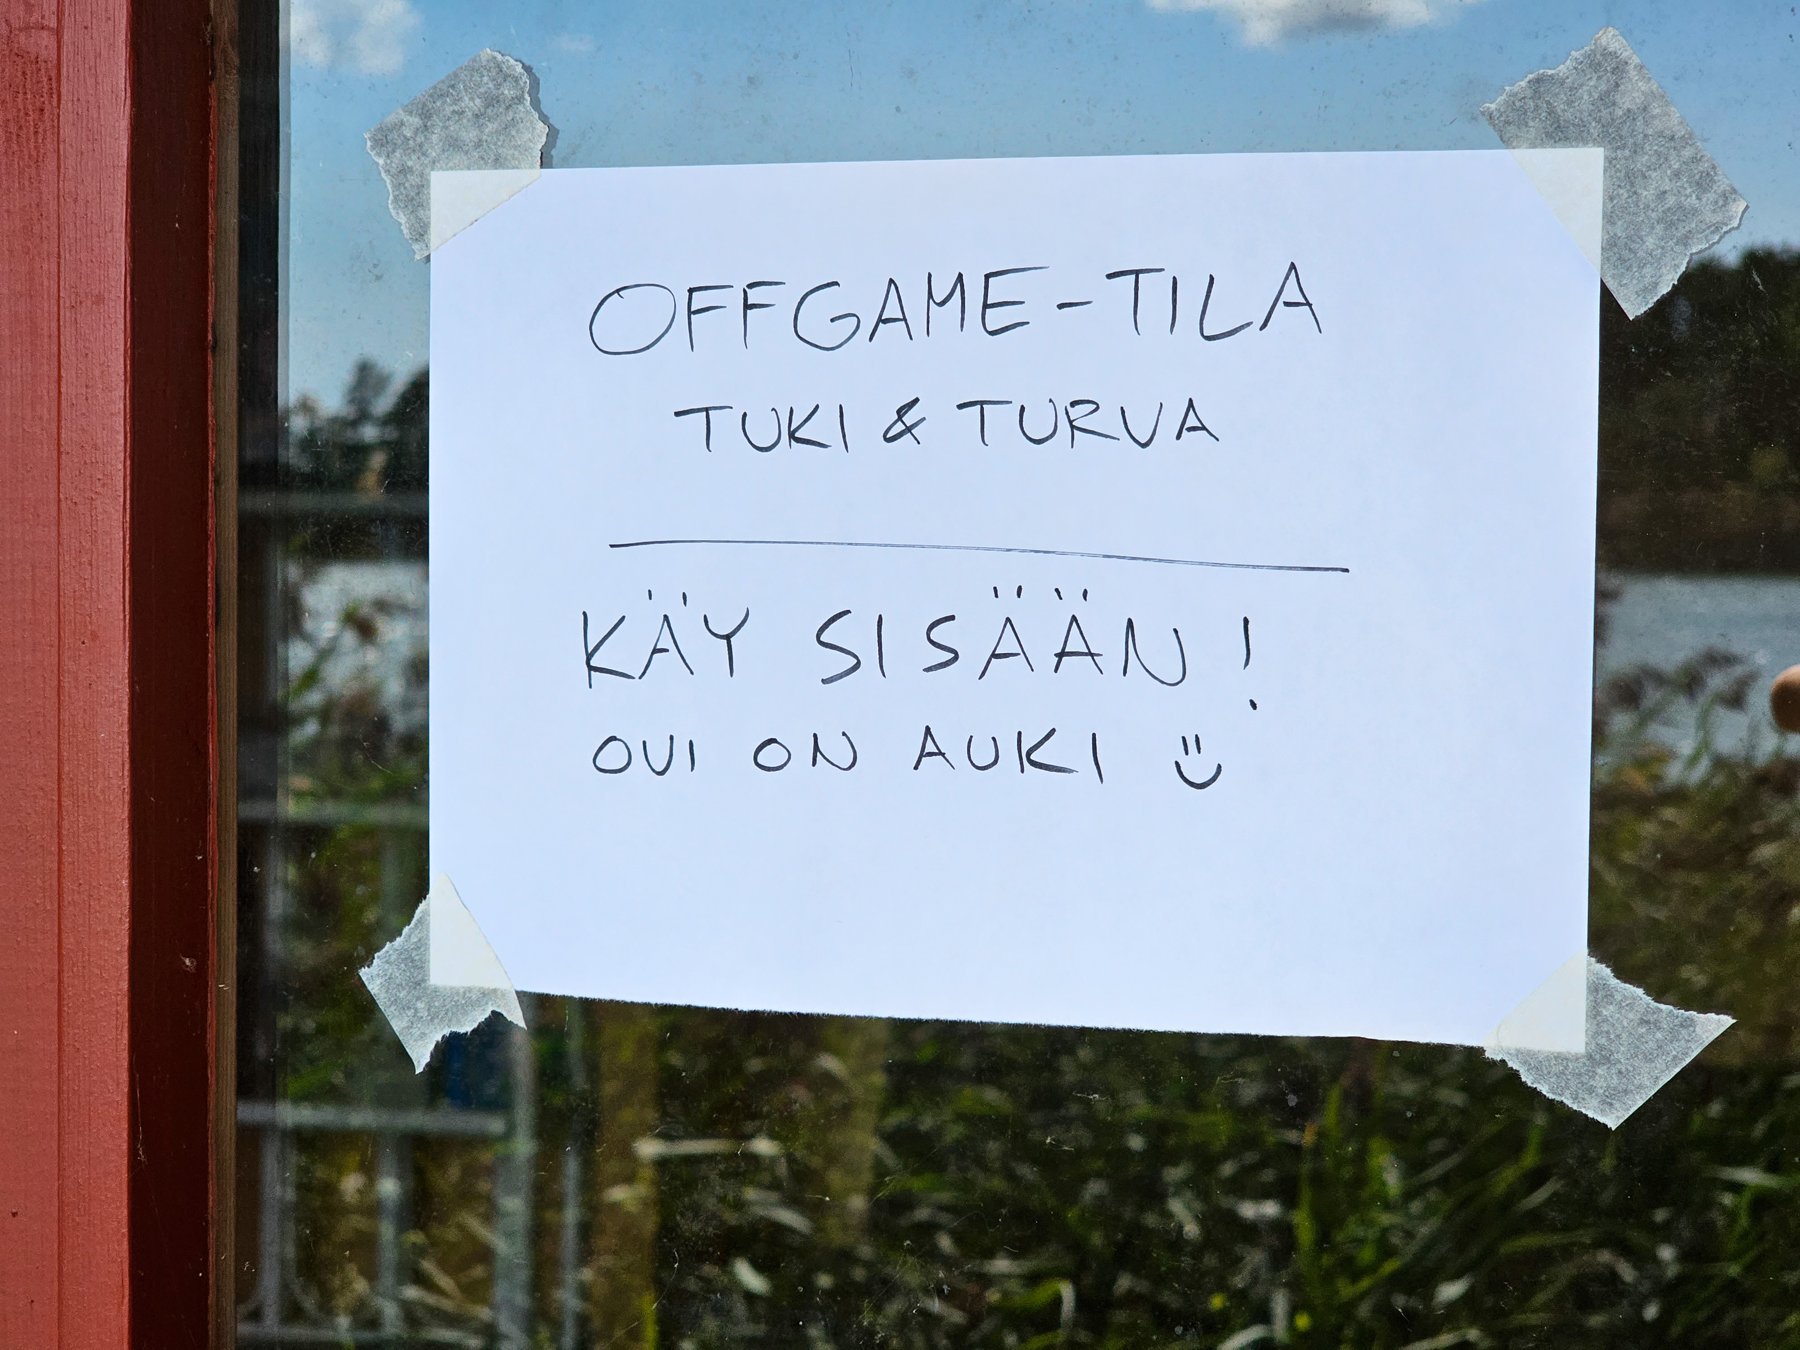 OFFGAME-TILA
TUKI & TURVA
KÄY SISÄÄN!
OVI ON AUKI